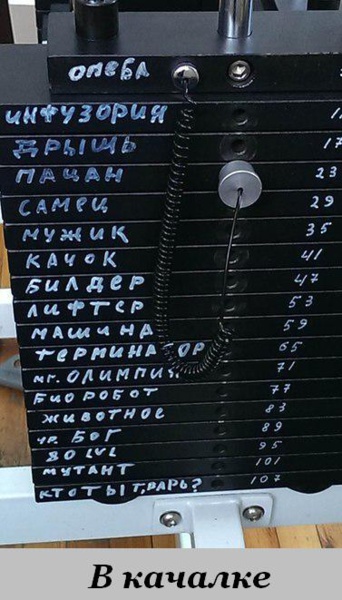 ОМЕБА
ИНФУЗОРИЯ
ДРЫЩЬ 17
ПАЦАН 23
САМЕЦ 29
МУЖИК 35
КАЧОК 41
БИЛДЕР 47
ЛИФТЕР 53
МАШИНА 59
ТЕРМИНАТОР 65
мг. ОЛИМПИЯ 71
БИОРОБОТ 77
ЖИВОТНОЕ 83
БОГ 89
80 LVL 95
МУТАНТ 101
КТО ТЫ ТВАРЬ? 107
В качалке